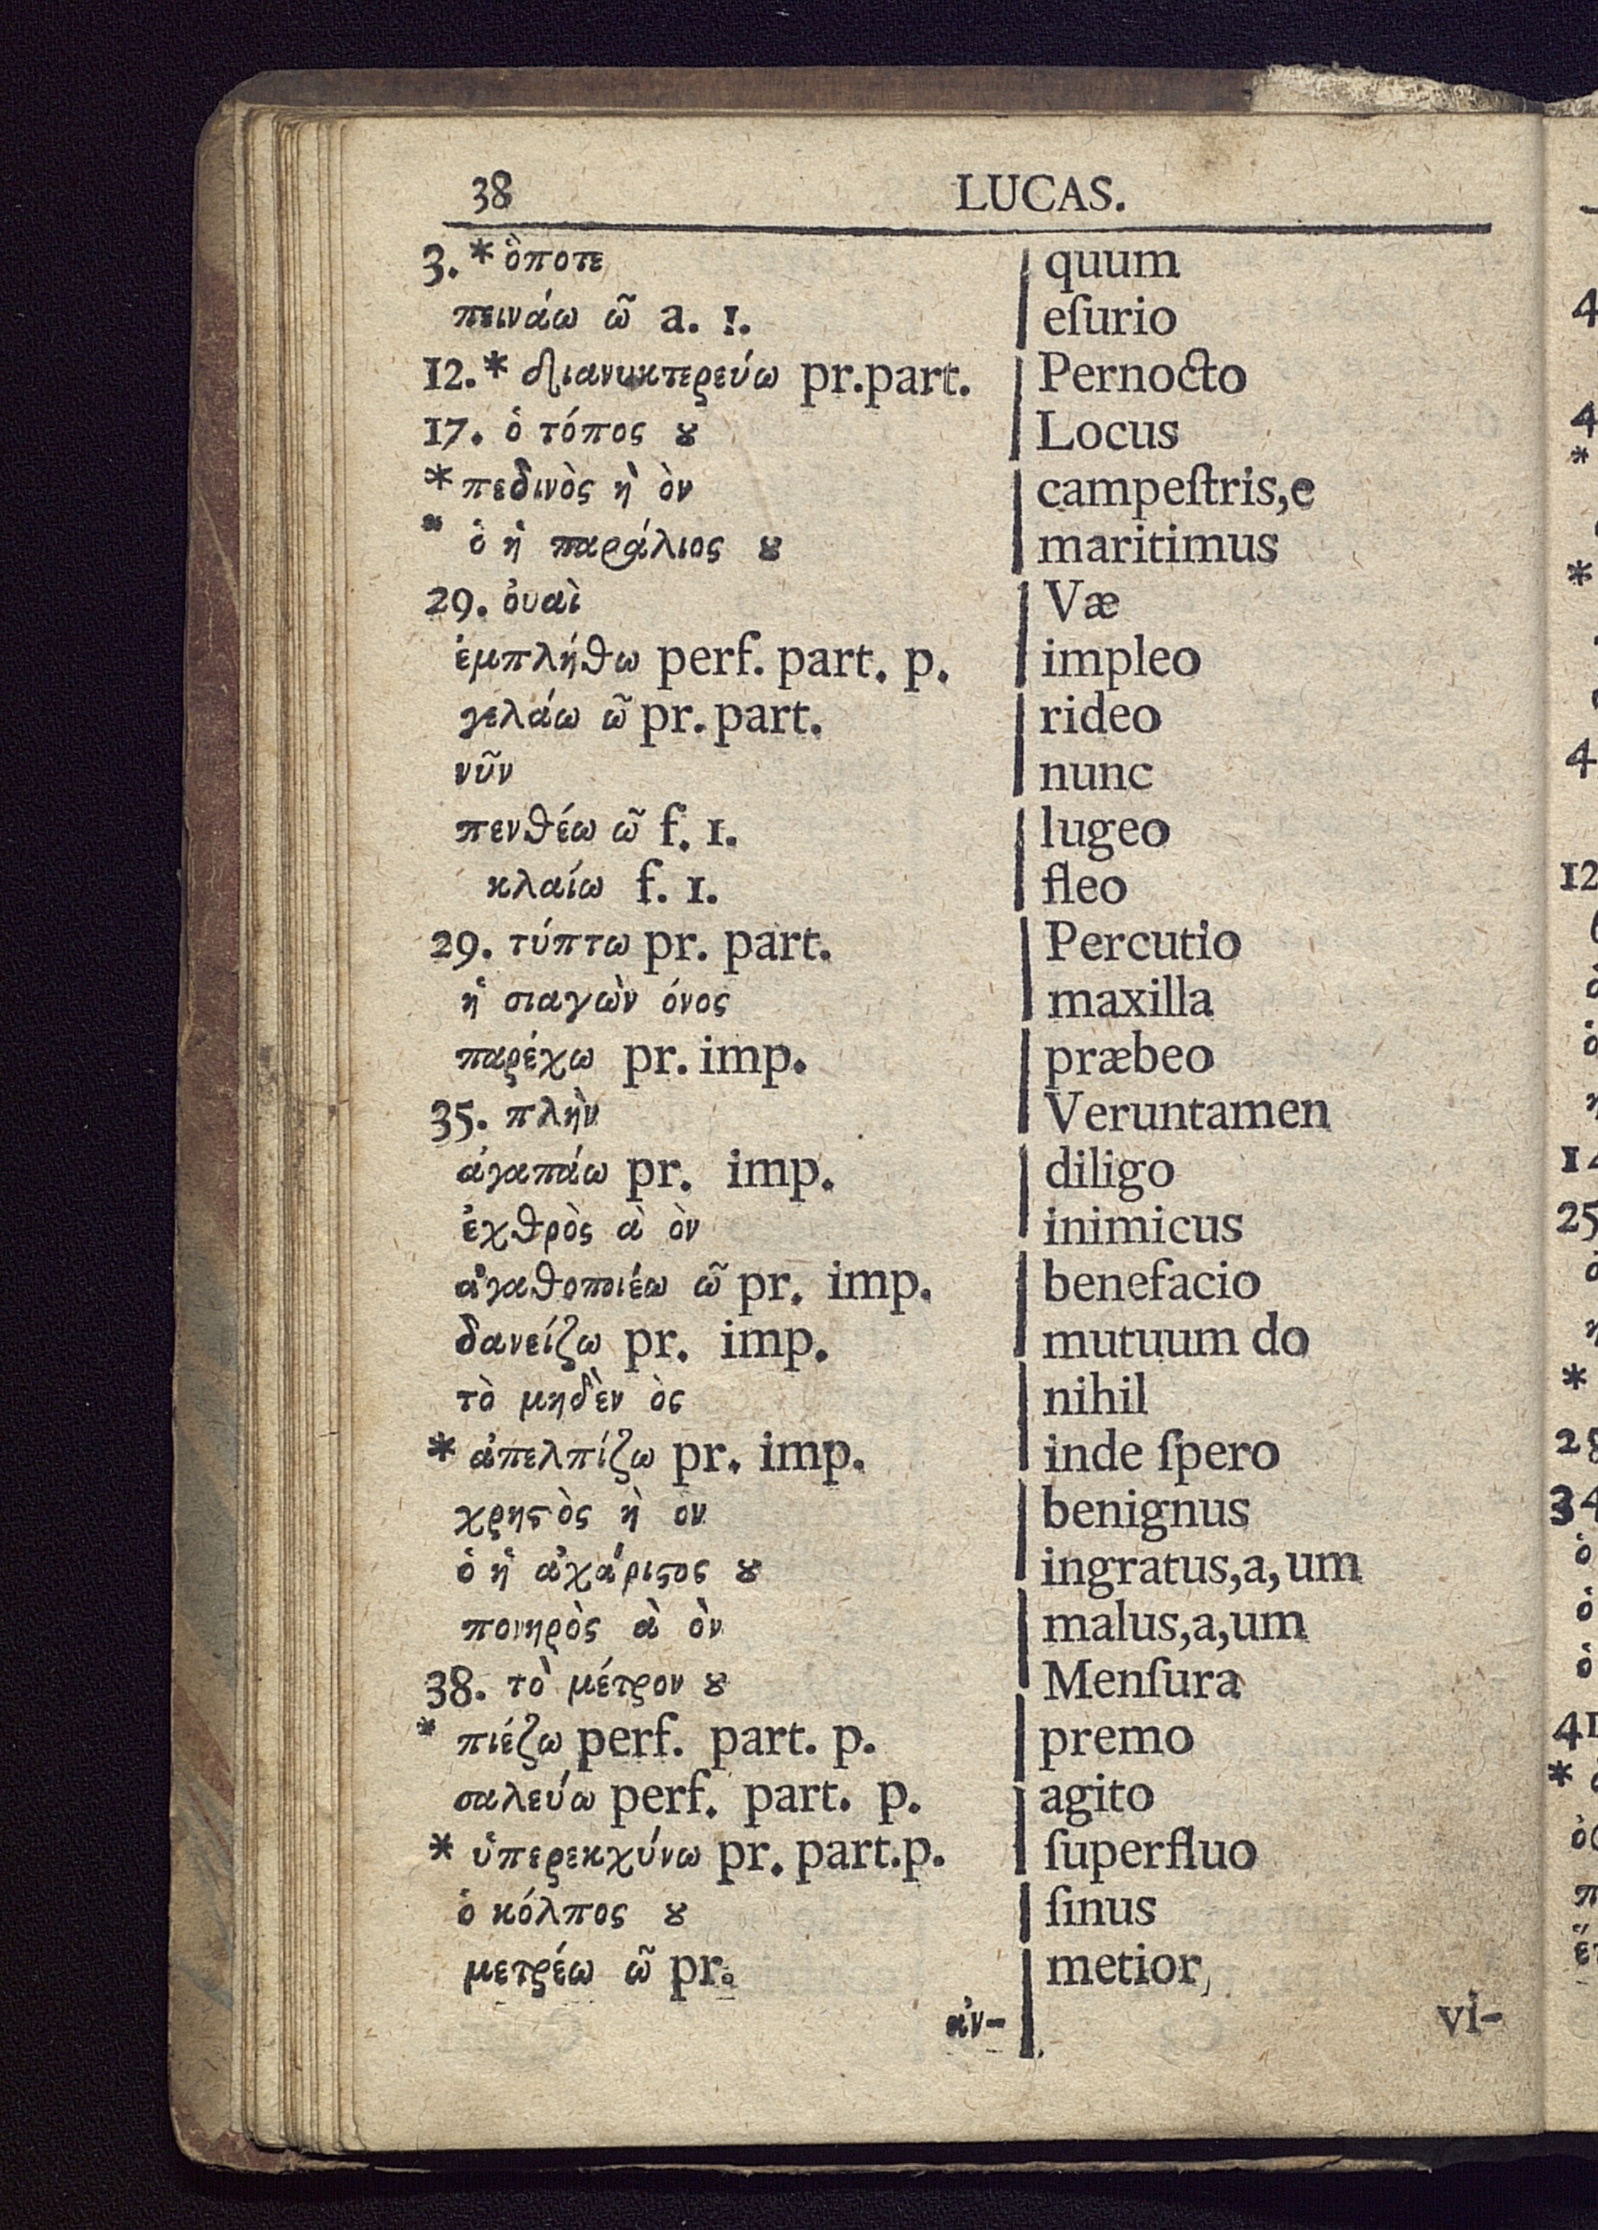 38 LUCAS.
3. * ὁποτε quum
πεινάω ῶ a. 1. eſurio
12. * διανυκτερεύω pr.part. Pernocto
17. ὁ τόπος ȣ Locus
* πεδινὸς ὴ ὸν campeſtris,e
* ὁ ἡ παράλιος ȣ maritimus
29. ὀυαὶ Væ
ἐμπλήθω perf. part. p. impleo
γελάω ῶ pr. part. rideo
νῦν nunc
πενθέω ῶ f. 1. lugeo
κλαίω f. 1. fleo
29. τύπτω pr. part. Percutio
ἡ σιαγὼν όνος maxilla
παρέχω pr. imp. præbeo
35. πλὴν Veruntamen
ἀγαπάω pr. imp. diligo
ἐχθρὸς ὰ ὸν inimicus
ἀγαθοποιέω ῶ pr. imp. benefacio
δανείζω pr. imp. mutuum do
τὸ μηδὲν ὸς nihil
* ἀπελπίζω pr. imp. inde ſpero
χρηϛὸς ὴ ον benignus
ὁ ἡ ἀχάριϛος ȣ ingratus,a,um
πονηρὸς ὰ ὸν malus,a,um
38. τὸ μέτρον ȣ Menſura
* πιέζω perf. part. p. premo
σαλεύω perf. part. p. agito
* ὑπερεκχύνω pr. part.p. ſuperfluo
ὁ κόλπος ȣ ſinus
μετρέω ῶ pr. metior
ἀν- vi-